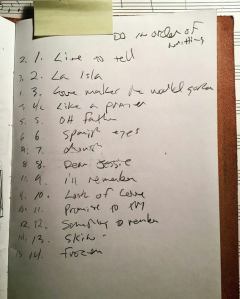 DO in order of
writing
2. 1. Live to tell
2. La Isla
1 3. Love makes the world go
4. Like a prayer
5. 5. Oh father
6 6 Spanish eyes
7.
8 8. Dear Jessie
9. I'll remember
9. 10. Looks of Love
11. Promise to try
12. 12. Something to remember
13. Skin
14. Frozen